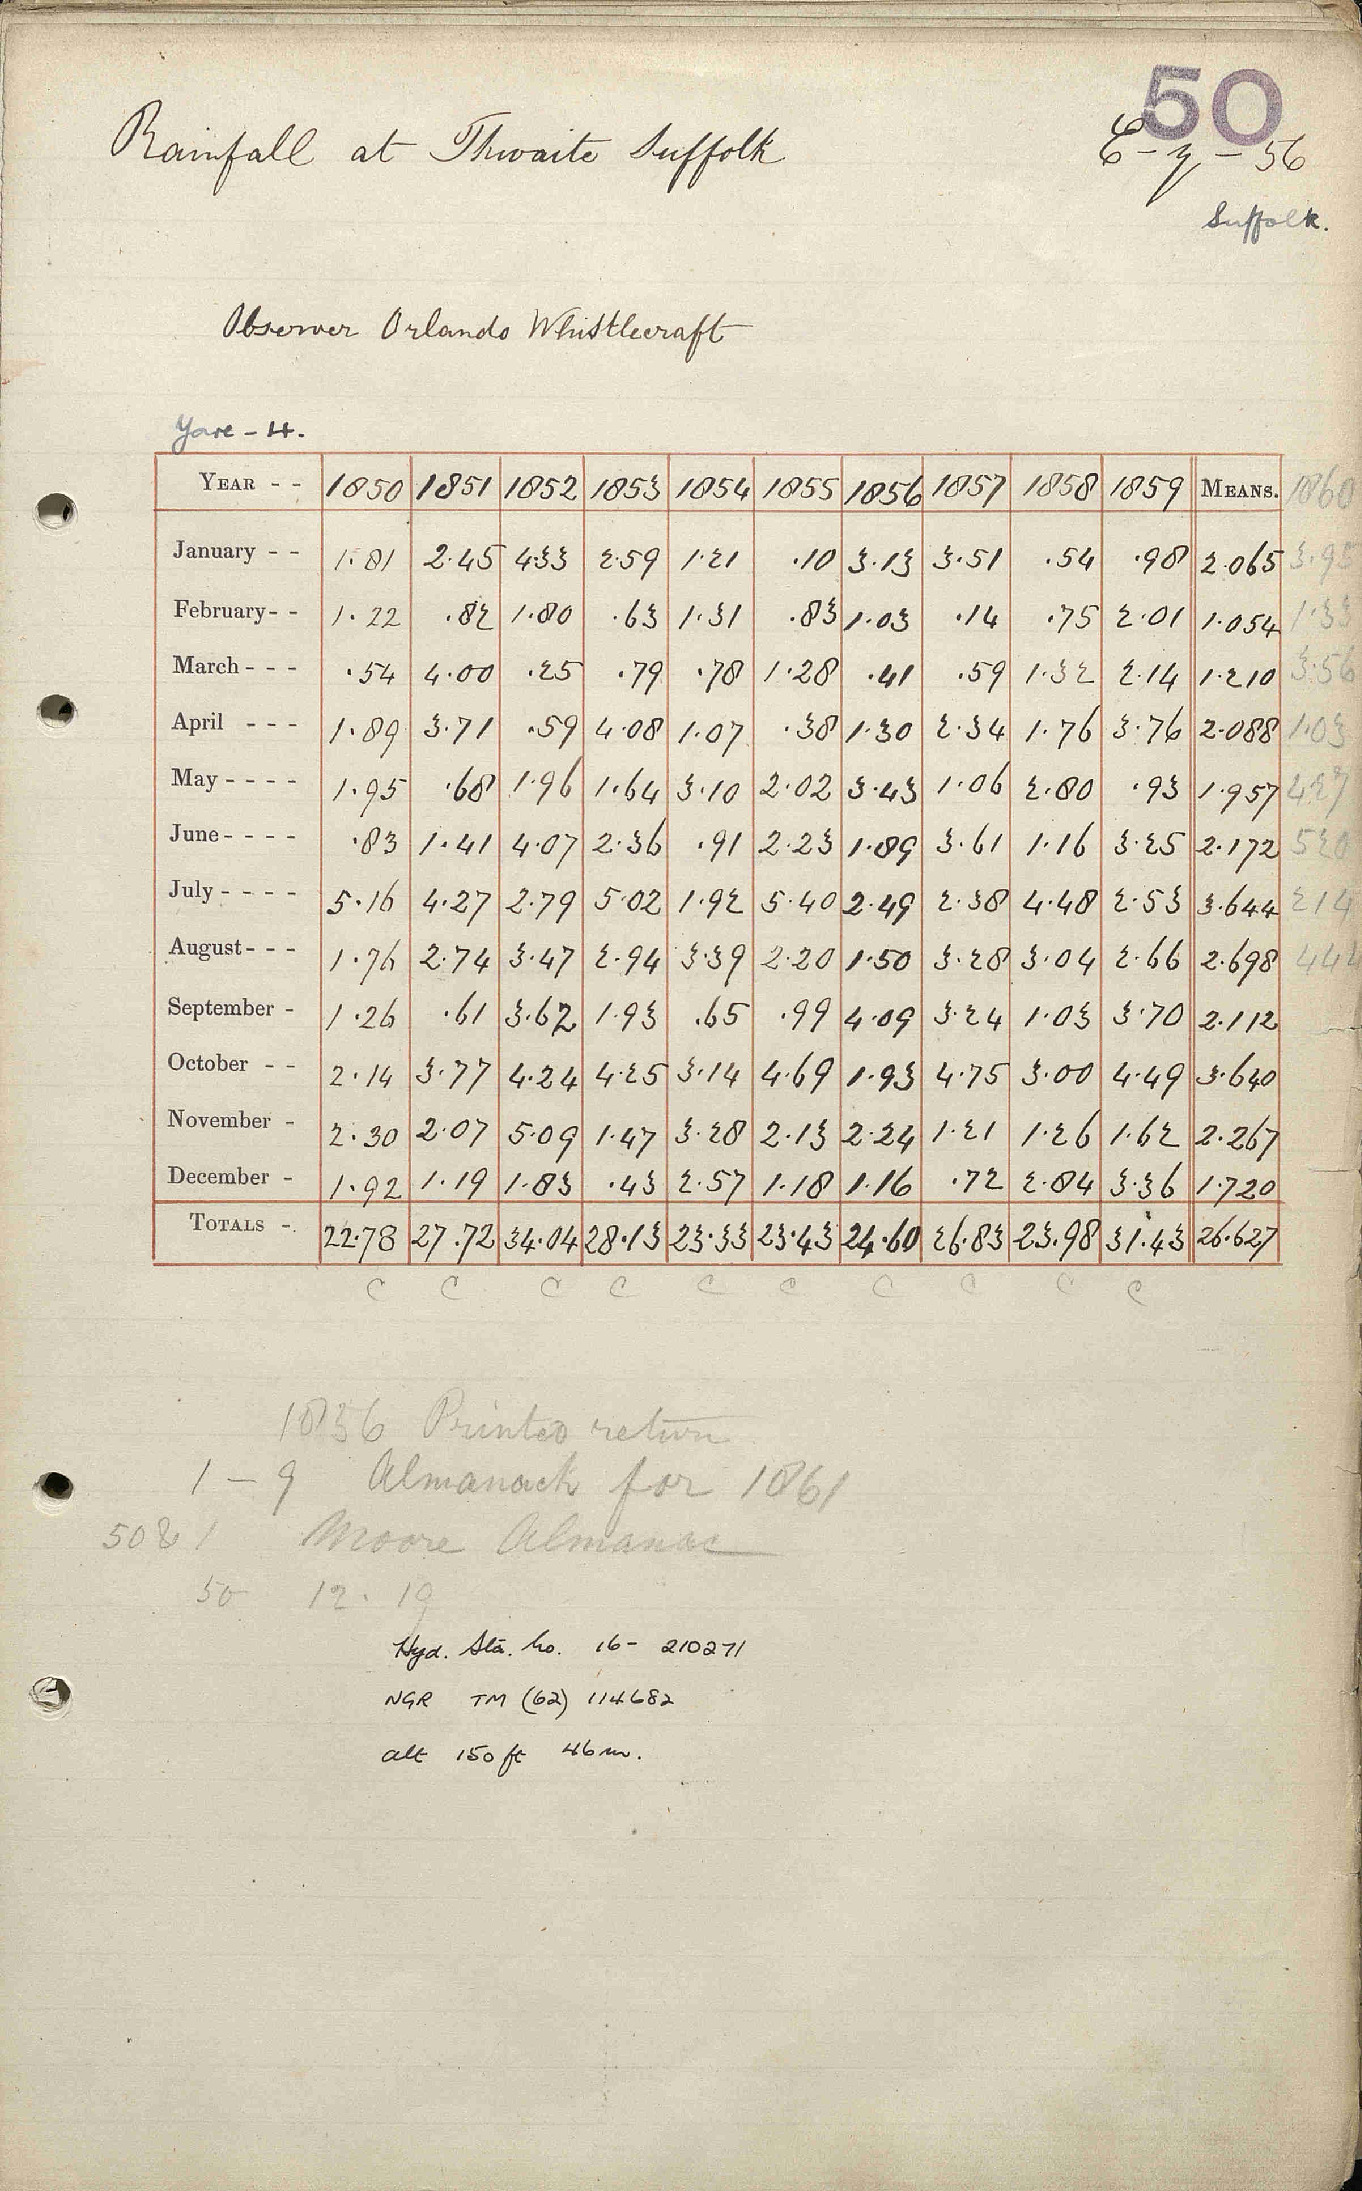 50
Rainfall at Thwaite Suffolk
56
Suffolk.
Observer Orlando Whistlecraft
Yare - H.
YEAR - - 1850 1851 1852 1853 1854 1855 1856 1857 1858 1859 MEANS. 1860
January - - 1.81 2.45 4.33 2.59 1.21 .10 3.13 3.51 .54 .98 2.065 3.95
February - - 1.22 .82 1.80 .63 1.31 .83 1.03 .14 .75 2.01 1.054 1.33
March - - - .54 4.00 .25 .79 .78 1.28 .41 .59 1.32 2.14 1.210 3.56
April - - - 1.89 3.71 .59 4.08 1.07 .38 1.30 2.34 1.76 3.76 2.088 1.03
May - - - - 1.95 .68 1.96 1.64 3.10 2.02 3.43 1.06 2.80 .93 1.957 427
June - - - - .83 1.41 4.07 2.36 .91 2.23 1.89 3.61 1.16 3.25 2.172 520
July - - - - 5.16 4.27 2.79 5.02 1.92 5.40 2.49 2.38 4.48 2.53 3.644 214
August - - - 1.76 2.74 3.47 2.94 3.39 2.20 1.50 3.28 3.04 2.66 2.698 444
September - 1.26 .61 3.62 1.93 .65 .99 4.09 3.24 1.03 3.70 2.112
October - - 2.14 3.77 4.24 4.25 3.14 4.69 1.93 4.75 3.00 4.49 3.640
November - 2.30 2.07 5.09 1.47 3.28 2.13 2.24 1.21 1.26 1.62 2.267
December - 1.92 1.19 1.83 .43 2.57 1.18 1.16 .72 2.84 3.36 1.720
TOTALS - 22.78 27.72 34.04 28.13 23.33 23.43 24.60 26.83 23.98 31.43 26.627
C C C C C C C C C C
1856 Printed return
1 - 9 Almanack for 1861
50 & 1 Moore Almanac
50 12. 19
Hyd. Sta. No. 16 - 210271
NGR TM (62) 114682
alt 150 ft 46 m.